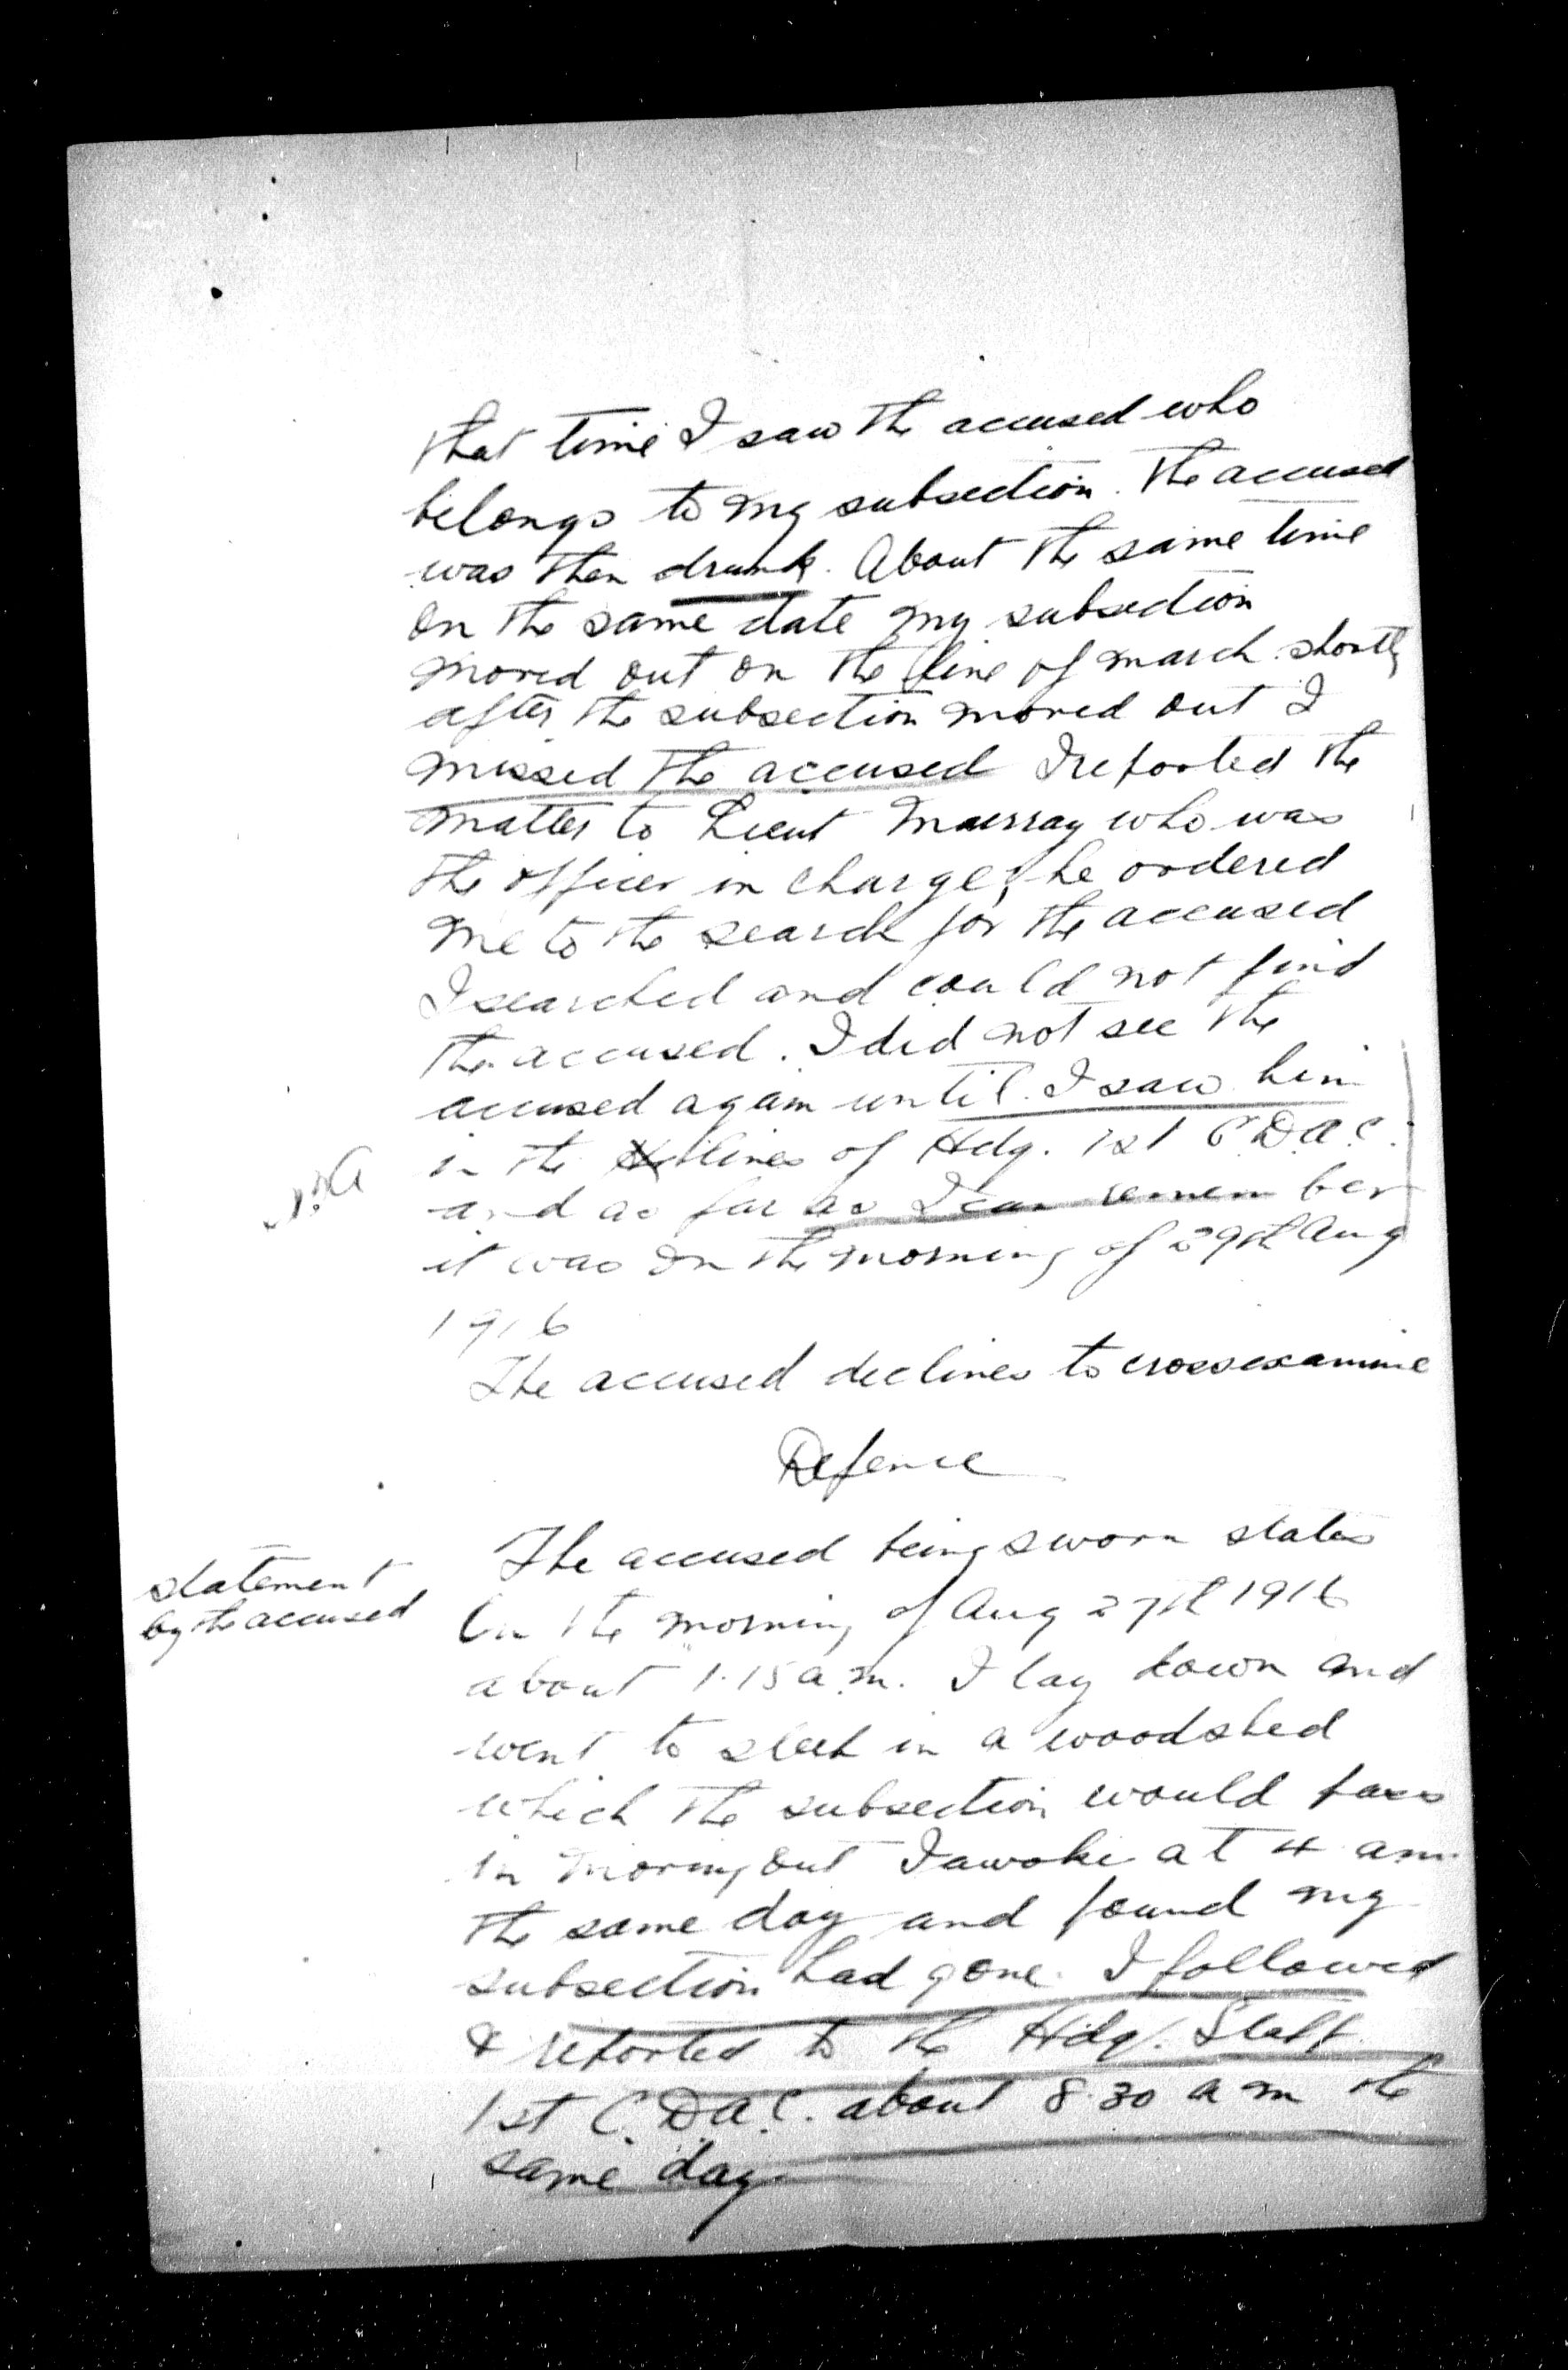 that time I saw the accused who
belongs to my subsection. The accused
was then drunk. About the same time
on the same date my subsection
moved out on the line of march. shortly
after the subsection moved out I
missed the accused I reported the
matter to Lieut Murray who was
the officer in charge, he ordered
me to the search for the accused
I searched and could not find
the accused. I did not see the
accused again until I saw him
in the lines of Hdq. 1st C.D.A.C.
and as far as I can remember
it was on the morning of 29th Aug
1916
The accused declines to crossexamine
Defence
statement
by the accused
The accused being sworn states
On the morning of Aug 27th 1916
about 1.15 a.m. I lay down and
went to sleep in a woodshed
which the subsection would pass
in moving out I awoke at 4 am
the same day and found my
subsection had gone. I followed
& reported to the Hdq. Staff
1st C.D.A.C. about 8.30 a m the
same day.